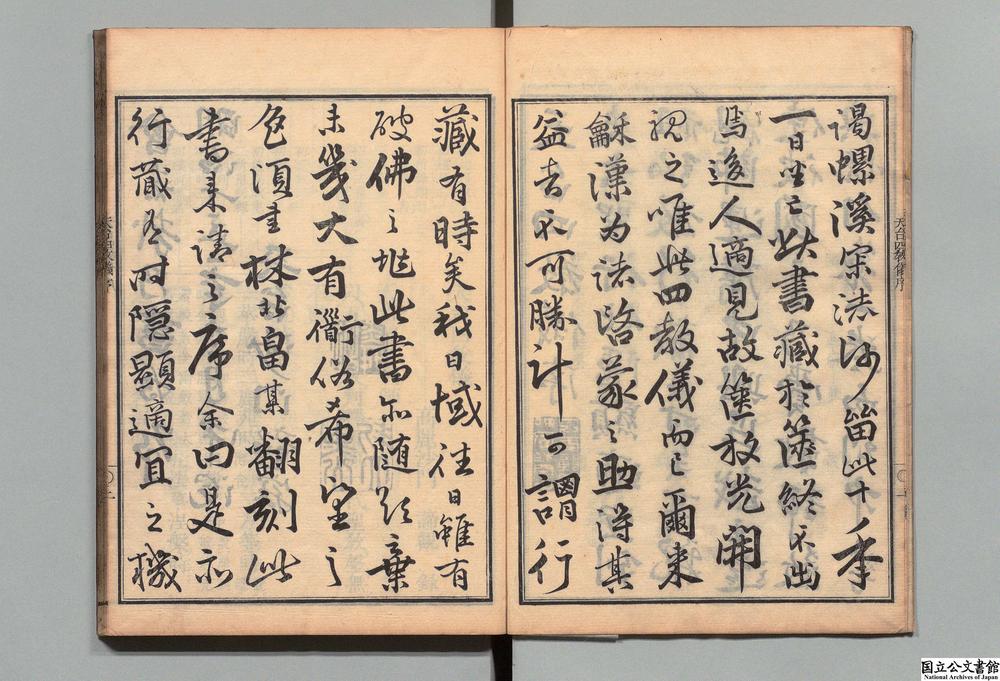 謁螺溪寂法師留此十季
一日坐亡此書藏於篋終不出
焉後人適見故篋放光開
視之唯此四教儀而已爾来
龢漢為諸啓蒙之助得其
益者不可勝計可謂行
藏有時矣我日域往日雖有
破佛之 此書亦随 棄
未幾大有 俗希望之
色頃書林北畠某翻刻此
書来請之序余曰是亦
行藏有時隠顕適宜之機
天台四教儀序
〇一
〇二
国立公文書館
National Archives of Japan